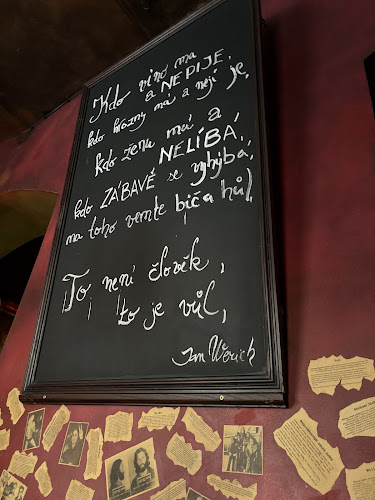 Kdo víno má
a NEPIJE,
kdo hrozny má a nejí je,
kdo ženu má a
NELÍBÁ,
kdo ZÁBAVĚ se vyhýbá,
na toho vemte bič a hůl,
To není člověk,
to je vůl,
Jan Werich